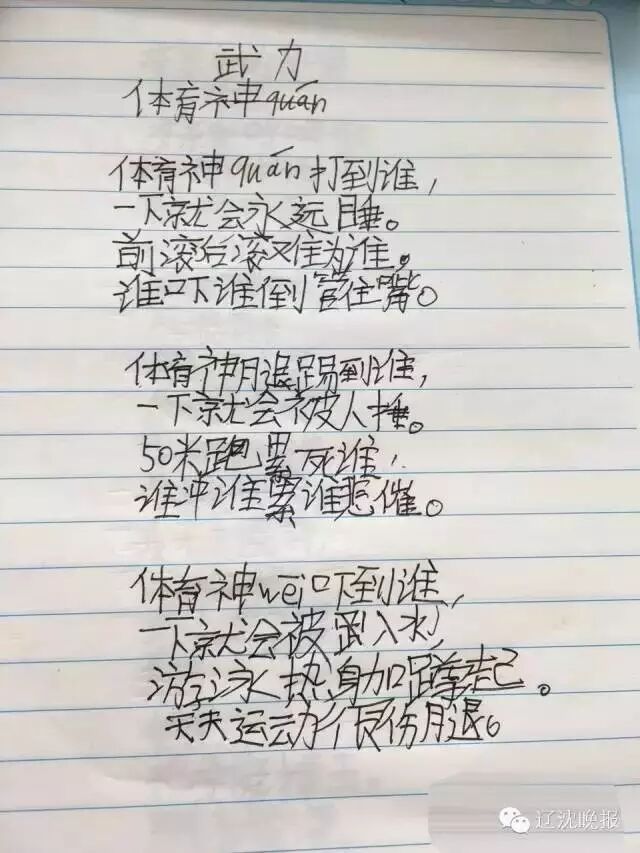 武力
体育神quán
体育神quán打到谁，
一下就会永远睡。
前滚后滚双难为谁。
谁吓谁倒管住嘴。
体育神腿踢到谁，
一下就会被人捶。
50米跑累死谁，
谁冲谁累谁悲催。
体育神wěi吓到谁，
一下就会被踢入水，
游泳热身加蹲起。
天天运动很伤腿。
辽沈晚报